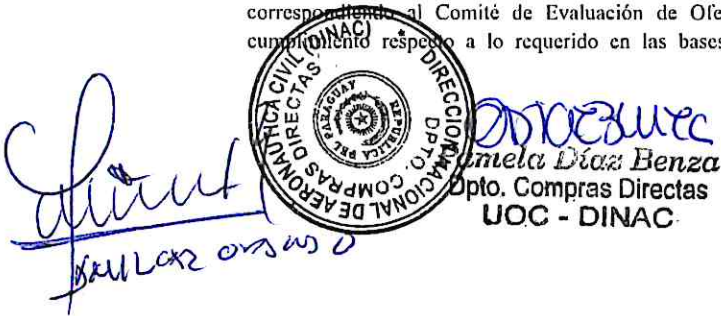 correspondiendo al Comité de Evaluación de Ofe
cumplimiento respecto a lo requerido en las bases
DIRECCION NACIONAL DE AERONAUTICA CIVIL (DINAC)
DPTO. COMPRAS DIRECTAS
REPUBLICA DEL PARAGUAY
Pamela Díaz Benza
Dpto. Compras Directas
UOC - DINAC